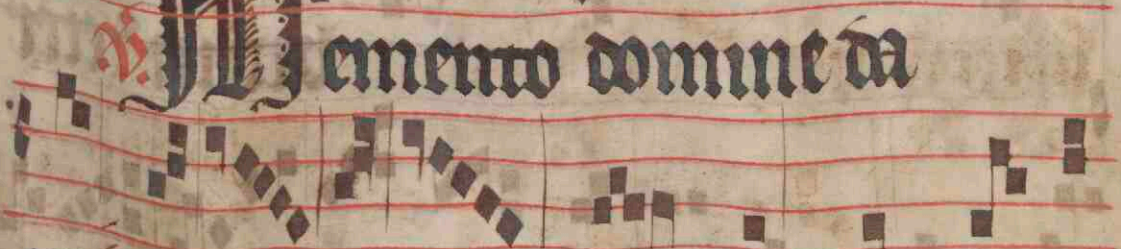 ℣. Memento domine da